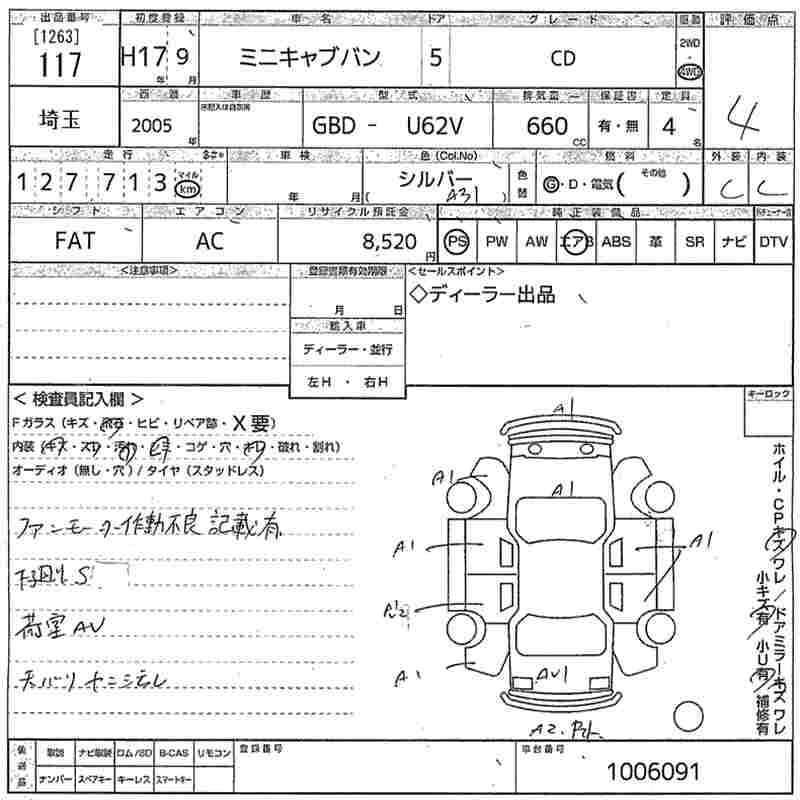 出品番号 初度登録 車名 ドア グレード 駆動 評価点
[1263] 117 H17年 9月 ミニキャブバン 5 CD 2WD・4WD
埼玉 西暦 車歴 型式 排気量 保証書 定員 4
2005年 GBD - U62V 660cc 有・無 4名
走行 車検 色(Col.No) 燃料 外装 内装
127713 マイル km 年 月 シルバー (A31) 色替 G・D・電気( その他 ) C C
シフト エアコン リサイクル預託金 純正装備品
FAT AC 8,520円 PS PW AW エアB ABS 革 SR ナビ DTV
<注意事項> 登録書類有効期限 <セールスポイント>
月 日 ◇ディーラー出品
輸入車
ディーラー・並行
左H・右H
<検査員記入欄> キーロック
Fガラス(キズ・飛石・ヒビ・リペア跡・X要)
内装(キズ・スリ・汚れ・ビス・コゲ・穴・切り・破れ・割れ)
オーディオ(無し・穴)/タイヤ(スタッドレス)
ファンモーター作動不良 記載有
下廻り S
荷室AU
天バリ ヤニ汚レ
A1
A1 A1
A1 A1
A1
AU1
A2.
ホイル・CPキズワレ/ドアミラーキズワレ
小キズ有 小U有 補修有
後送品 取説 ナビ取説 ロム/SD B-CAS リモコン 登録番号 車台番号
ナンバー スペアキー キーレス スマートキー 1006091